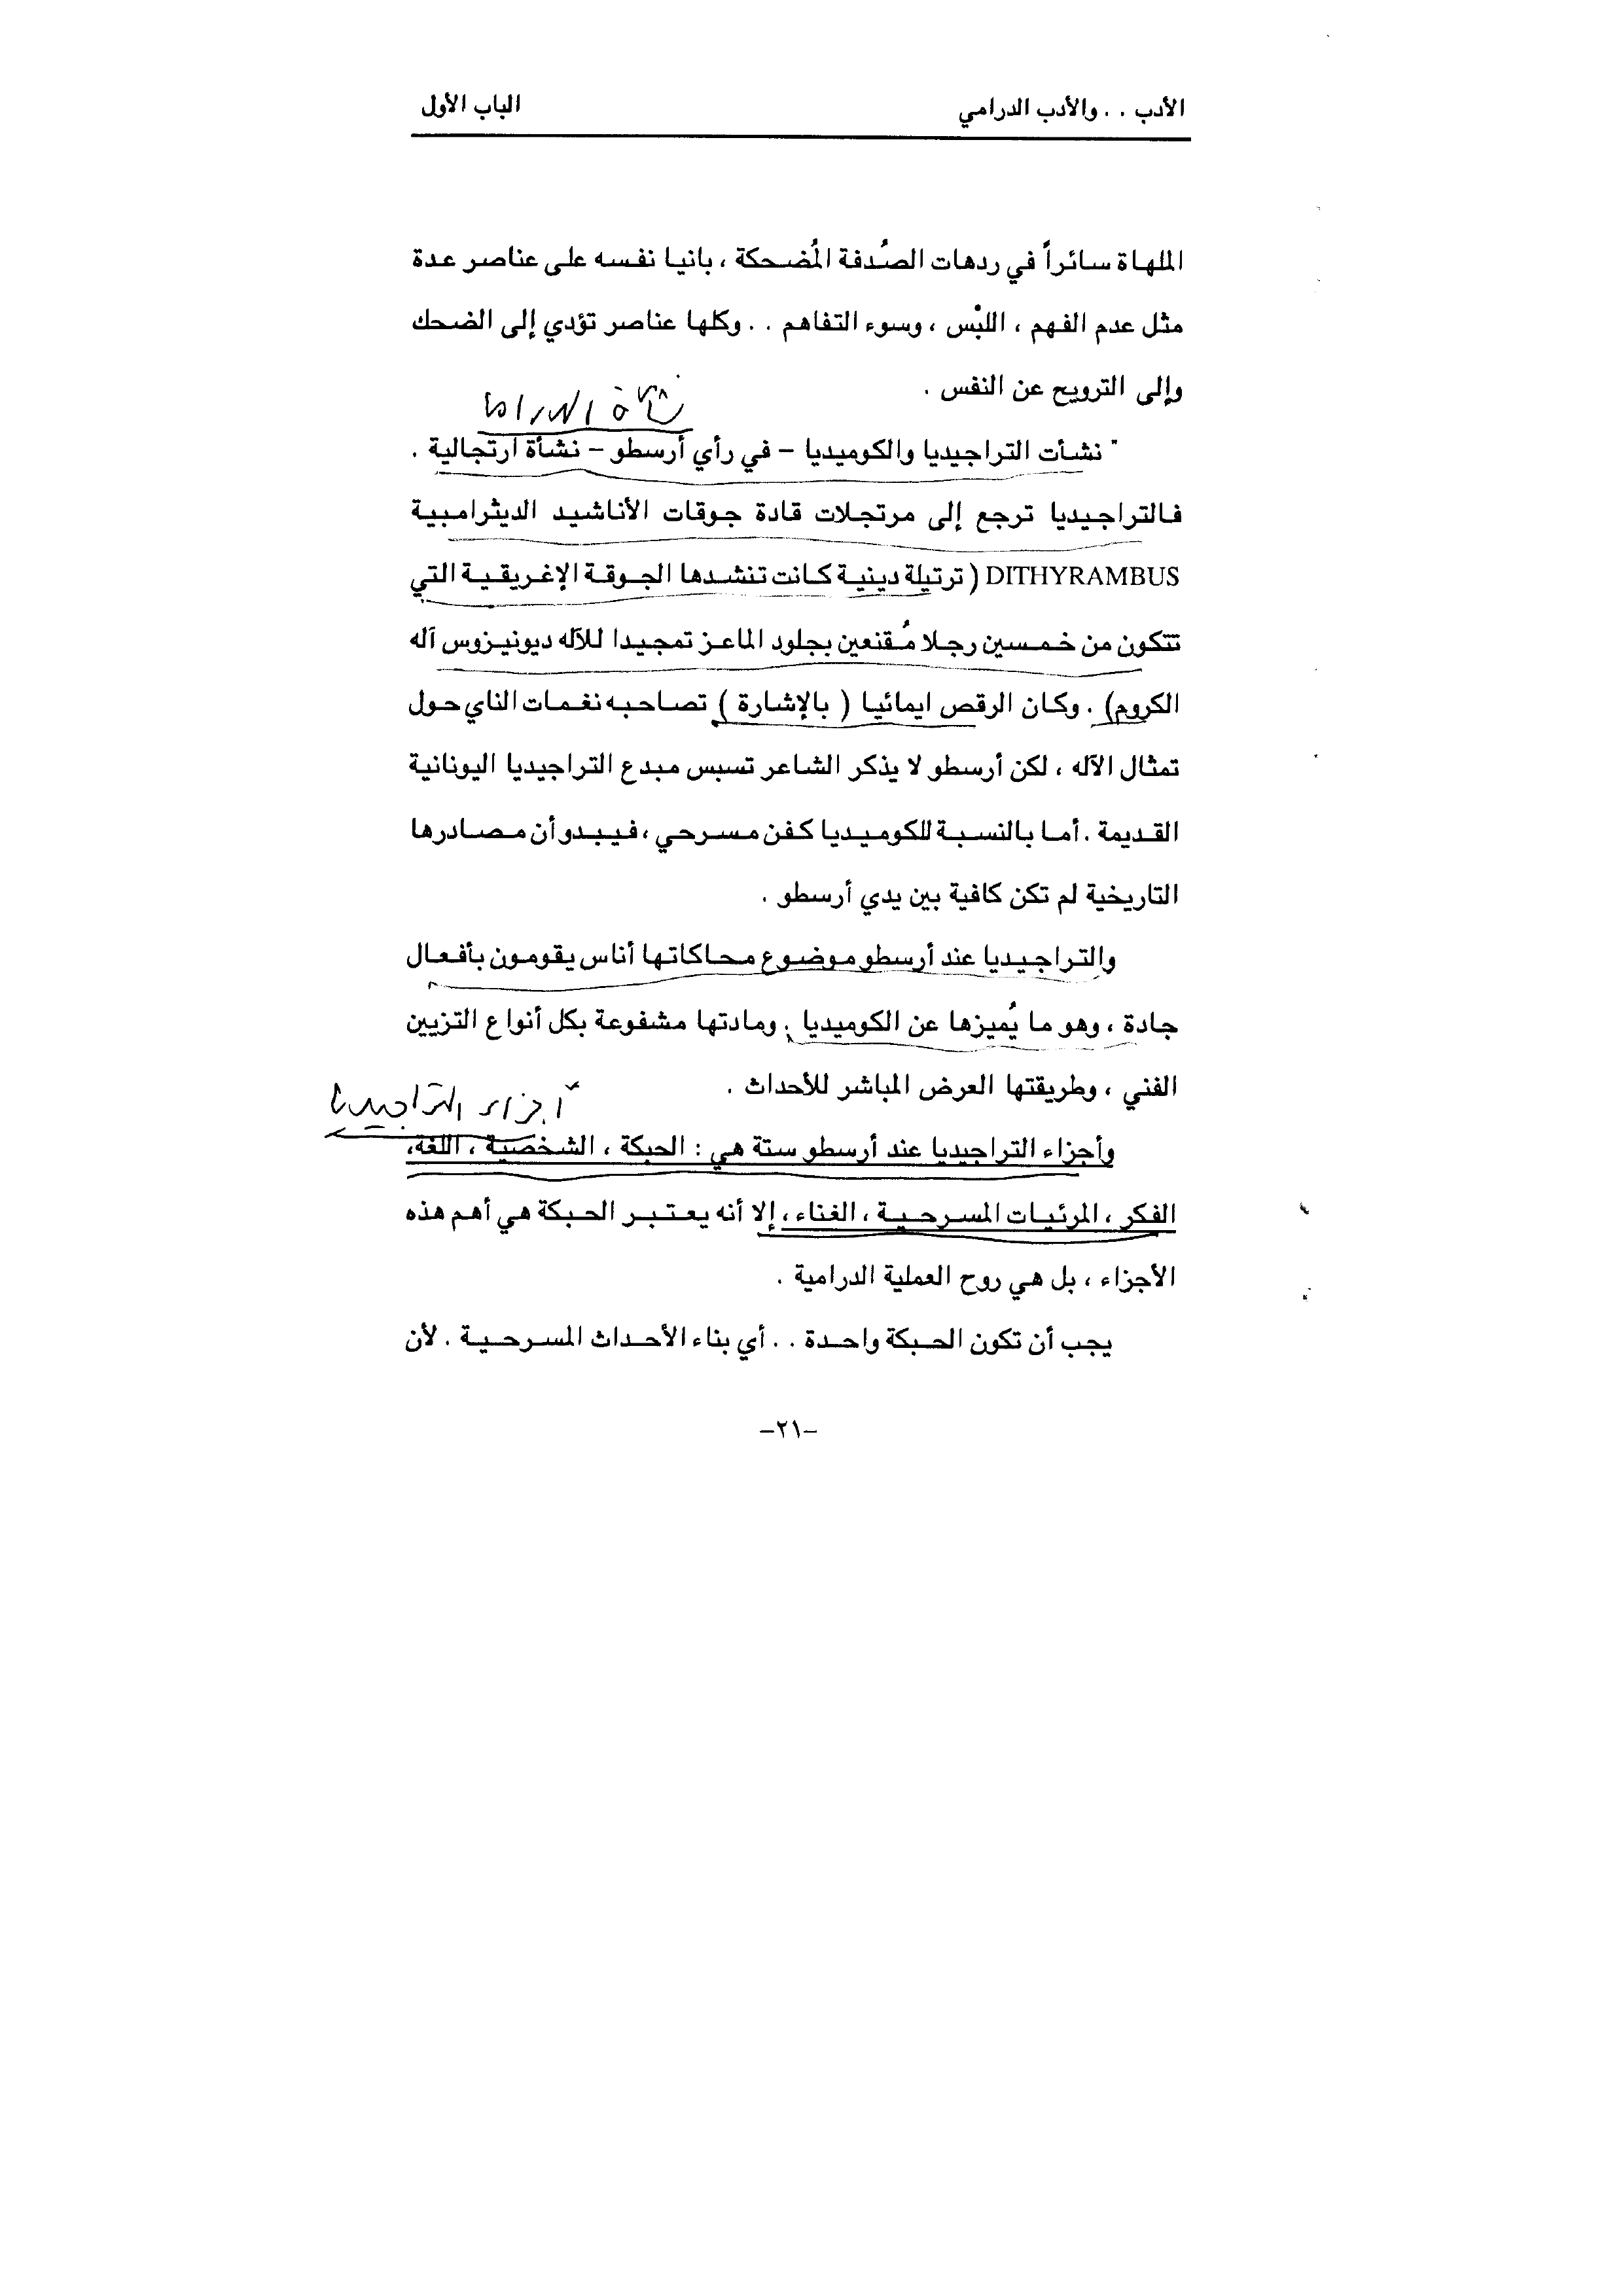 الأدب . . والأدب الدرامي
الباب الأول
الملهاة سائراً في ردهات الصُدفة المُضحكة ، بانيا نفسه على عناصر عدة
مثل عدم الفهم ، اللبْس ، وسوء التفاهم . . وكلها عناصر تؤدي إلى الضحك
وإلى الترويح عن النفس .
نشأة الدراما
" نشأت التراجيديا والكوميديا – في رأي أرسطو – نشأة ارتجالية .
فالتراجيديا ترجع إلى مرتجلات قادة جوقات الأناشيد الديثرامبية
DITHYRAMBUS ( ترتيلة دينية كانت تنشدها الجوقة الإغريقية التي
تتكون من خمسين رجلا مُقنعين بجلود الماعز تمجيدا للآله ديونيزوس آله
الكروم) . وكان الرقص ايمائيا ( بالإشارة ) تصاحبه نغمات الناي حول
تمثال الآله ، لكن أرسطو لا يذكر الشاعر تسبس مبدع التراجيديا اليونانية
القديمة . أما بالنسبة للكوميديا كفن مسرحي ، فيبدو أن مصادرها
التاريخية لم تكن كافية بين يدي أرسطو .
والتراجيديا عند أرسطو موضوع محاكاتها أناس يقومون بأفعال
جادة ، وهو ما يُميزها عن الكوميديا . ومادتها مشفوعة بكل أنواع التزيين
الفني ، وطريقتها العرض المباشر للأحداث .
أجزاء التراجيديا
وأجزاء التراجيديا عند أرسطو ستة هي : الحبكة ، الشخصية ، اللغة،
الفكر ، المرئيات المسرحية ، الغناء ، إلا أنه يعتبر الحبكة هي أهم هذه
الأجزاء ، بل هي روح العملية الدرامية .
يجب أن تكون الحبكة واحدة . . أي بناء الأحداث المسرحية . لأن
–٢١–